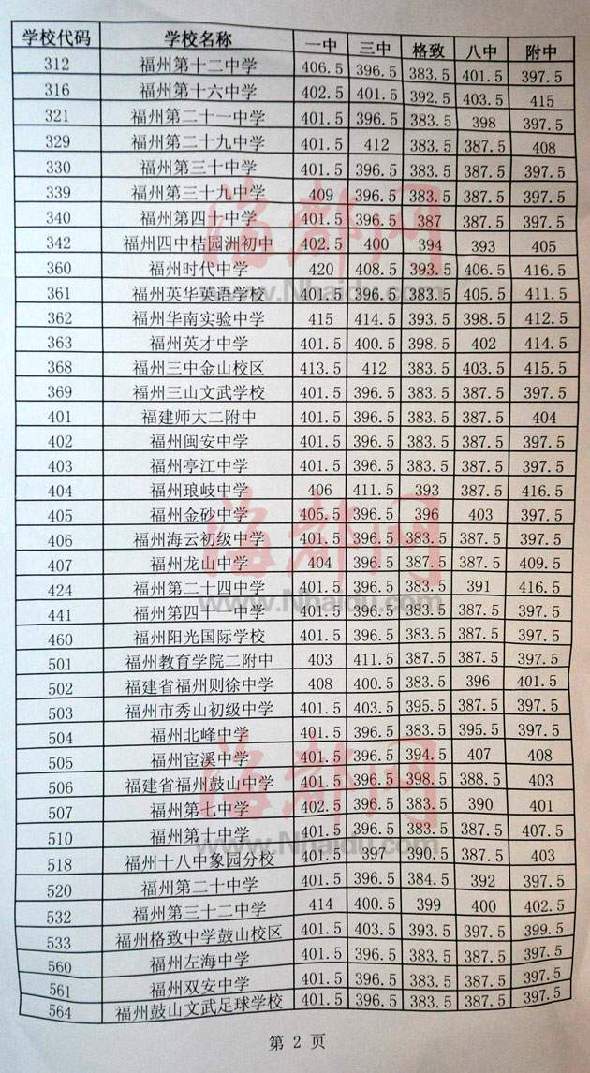 学校代码 学校名称 一中 三中 格致 八中 附中
312 福州第十二中学 406.5 396.5 383.5 401.5 397.5
316 福州第十六中学 402.5 401.5 392.5 403.5 415
321 福州第二十一中学 401.5 396.5 383.5 398 397.5
329 福州第二十九中学 401.5 412 383.5 387.5 408
330 福州第三十中学 401.5 396.5 383.5 387.5 397.5
339 福州第三十九中学 409 396.5 383.5 387.5 397.5
340 福州第四十中学 401.5 396.5 387 387.5 397.5
342 福州四中桔园洲初中 402.5 400 394 393 405
360 福州时代中学 420 408.5 393.5 406.5 416.5
361 福州英华英语学校 401.5 396.5 383.5 405.5 411.5
362 福州华南实验中学 415 414.5 393.5 398.5 412.5
363 福州英才中学 401.5 400.5 398.5 402 414.5
368 福州三中金山校区 413.5 412 383.5 403.5 415.5
369 福州三山文武学校 401.5 396.5 383.5 387.5 397.5
401 福建师大二附中 401.5 396.5 383.5 387.5 404
402 福州闽安中学 401.5 396.5 383.5 387.5 397.5
403 福州亭江中学 401.5 396.5 383.5 387.5 397.5
404 福州琅岐中学 406 411.5 393 387.5 416.5
405 福州金砂中学 405.5 396.5 396 403 397.5
406 福州海云初级中学 401.5 396.5 383.5 387.5 397.5
407 福州龙山中学 404 396.5 387.5 387.5 409.5
424 福州第二十四中学 401.5 396.5 383.5 391 416.5
441 福州第四十一中学 401.5 396.5 383.5 387.5 397.5
460 福州阳光国际学校 401.5 396.5 383.5 387.5 397.5
501 福州教育学院二附中 403 411.5 387.5 387.5 397.5
502 福建省福州则徐中学 408 400.5 383.5 396 401.5
503 福州市秀山初级中学 401.5 403.5 395.5 387.5 397.5
504 福州北峰中学 401.5 396.5 383.5 395.5 397.5
505 福州宦溪中学 401.5 396.5 394.5 407 408
506 福建省福州鼓山中学 401.5 396.5 398.5 388.5 403
507 福州第七中学 402.5 396.5 383.5 390 401
510 福州第十中学 401.5 396.5 383.5 387.5 407.5
518 福州十八中象园分校 401.5 397 390.5 387.5 403
520 福州第二十中学 401.5 396.5 384.5 392 397.5
532 福州第三十二中学 414 400.5 399 400 402.5
533 福州格致中学鼓山校区 401.5 403.5 393.5 397.5 399.5
560 福州左海中学 401.5 396.5 383.5 387.5 397.5
561 福州双安中学 401.5 396.5 383.5 387.5 397.5
564 福州鼓山文武足球学校 401.5 396.5 383.5 387.5 397.5
第 2 页
海都网
www.Nhaidu.com
海都网
www.Nhaidu.com
海都网
www.Nhaidu.com